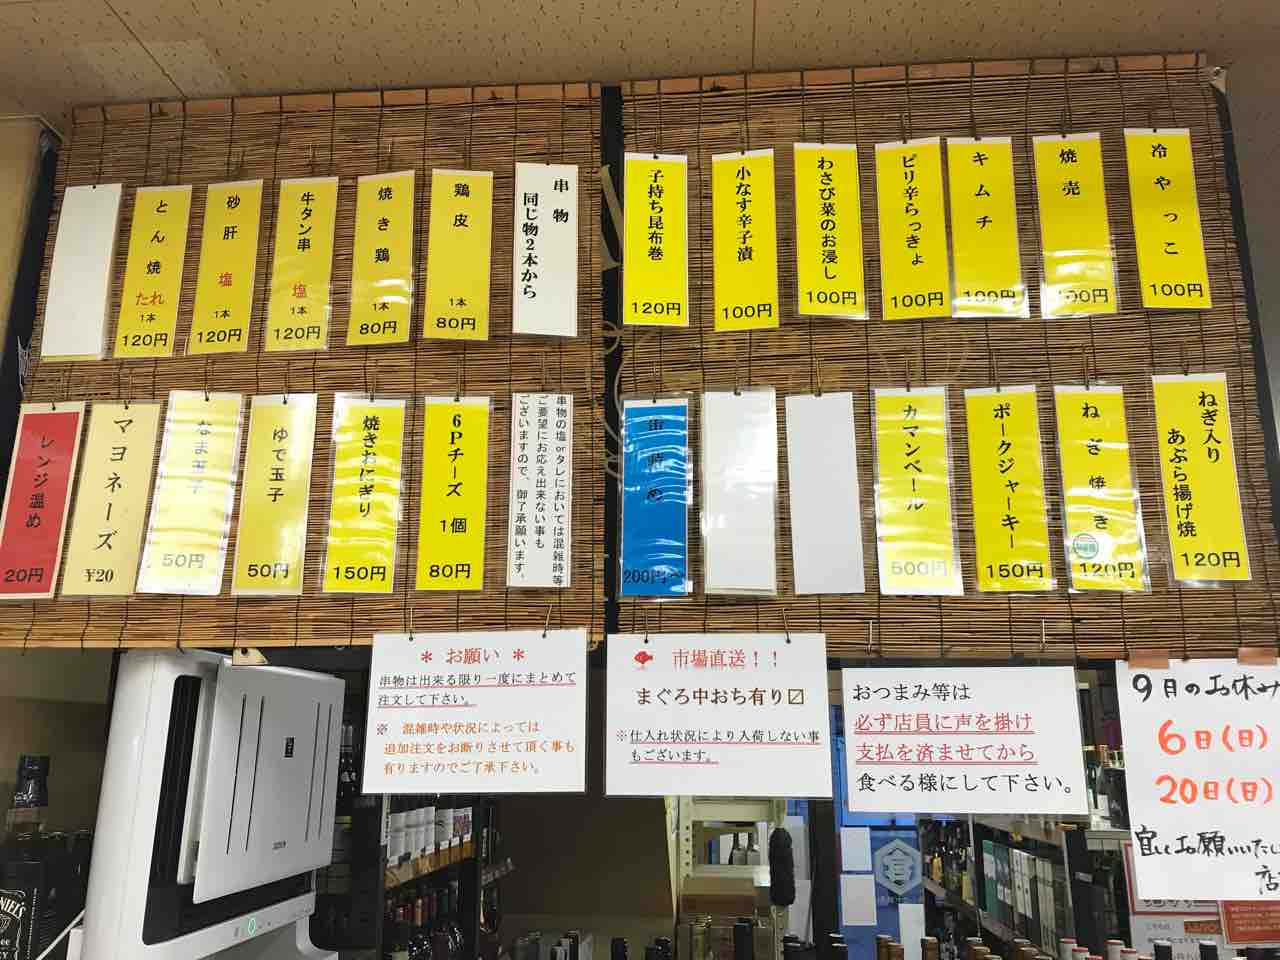 冷やっこ
100円
焼売
100円
キムチ
100円
ピリ辛らっきょ
100円
わさび菜のお浸し
100円
小なす辛子漬
100円
子持ち昆布巻
120円
串物
同じ物2本から
鶏皮
1本
80円
焼き鶏
1本
80円
牛タン串
塩
1本
120円
砂肝
塩
1本
120円
とん焼
たれ
1本
120円
ねぎ入り
あぶら揚げ焼
120円
ねぎ焼き
120円
ポークジャーキー
150円
カマンベール
500円
缶詰め
200円〜
串物の塩orタレにおいては混雑時等
ご要望にお応え出来ない事も
ございますので、御了承願います。
6Pチーズ
1個
80円
焼きおにぎり
150円
ゆで玉子
50円
なま玉子
50円
マヨネーズ
¥20
レンジ温め
20円
＊ お願い ＊
串物は出来る限り一度にまとめて
注文して下さい。
※ 混雑時や状況によっては
追加注文をお断りさせて頂く事も
有りますのでご了承下さい。
市場直送！！
まぐろ中おち有り〼
※仕入れ状況により入荷しない事
もございます。
おつまみ等は
必ず店員に声を掛け
支払を済ませてから
食べる様にして下さい。
9月のお休み
6日(日)
20日(日)
宜しくお願いいたし
店